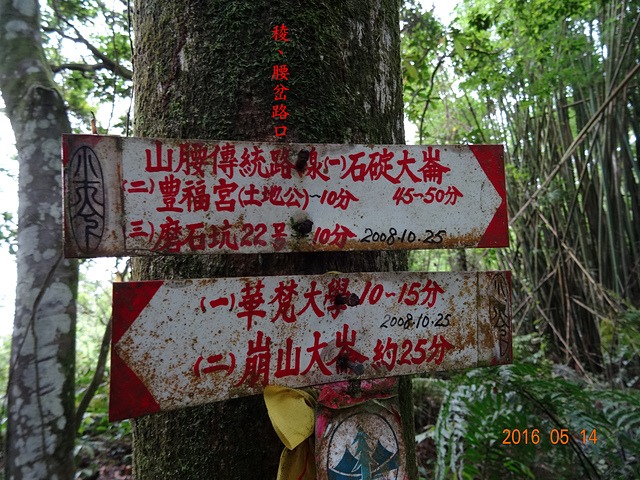 稜、腰岔路口
山腰傳統路線(一)石碇大崙
(二)豐福宮(土地公)~10分 45~50分
(三)磨石坑22号 10分 2008.10.25
小天令
(一)華梵大學10~15分
2008.10.25
(二)崩山大崙約25分
2016 05 14